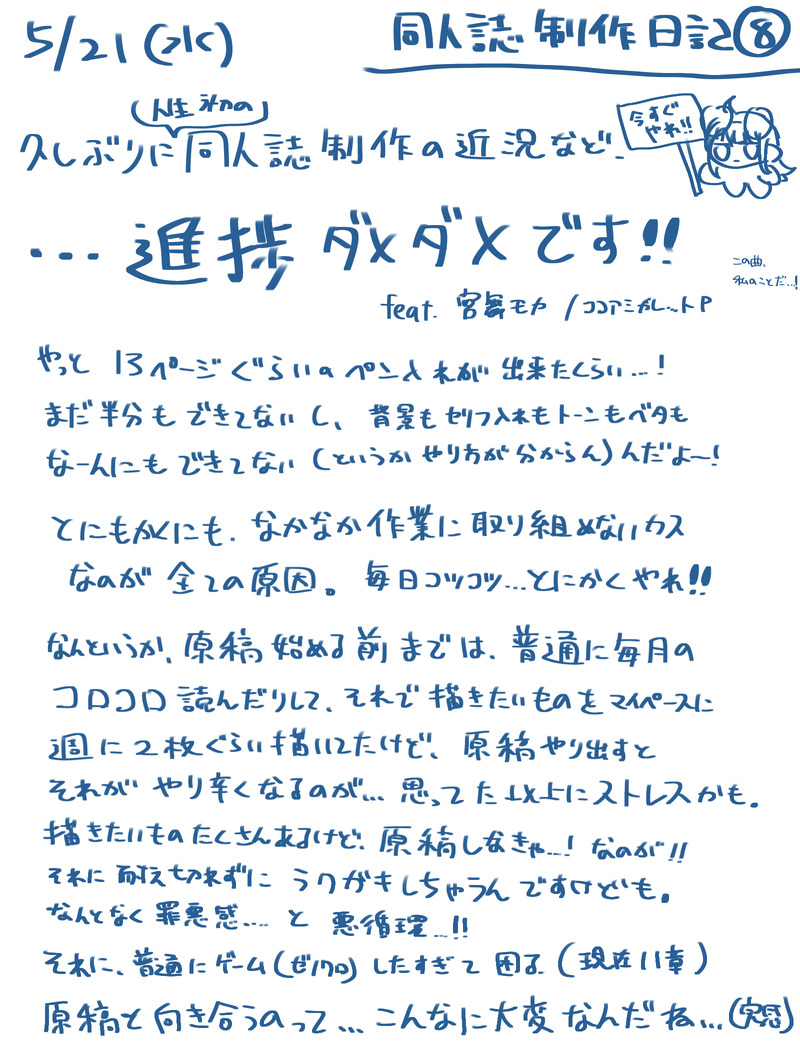 5/21(水)
同人誌制作日記⑧
(人生初の)
久しぶりに同人誌制作の近況など、
今すぐ
やれ!!
…進捗ダメダメです!!
この曲、
私のことだ…!
feat. 宮舞モカ / ココアシガレットP
やっと 13ページぐらいのペン入れが出来たくらい…!
まだ半分もできてないし、背景もセリフ入れもトーンもベタも
なーんにもできてない(というかやり方が分からん)んだよ〜!
とにもかくにも、なかなか作業に取り組めないカス
なのが全ての原因。毎日コツコツ…とにかくやれ!!
なんというか、原稿始める前までは、普通に毎月の
コロコロ読んだりして、それで描きたいものをマイペースに
週に2枚ぐらい描いてたけど、原稿やり出すと
それがやり辛くなるのが…思ってた以上にストレスかも。
描きたいものたくさんあるけど、原稿しなきゃ…!なのが!!
それに耐え切れずにラクガキしちゃうんですけども。
なんとなく罪悪感…と悪循環…!!
それに、普通にゲーム(ゼノクロ)したすぎて困る(現在11章)
原稿と向き合うのって…こんなに大変なんだね…(実感)